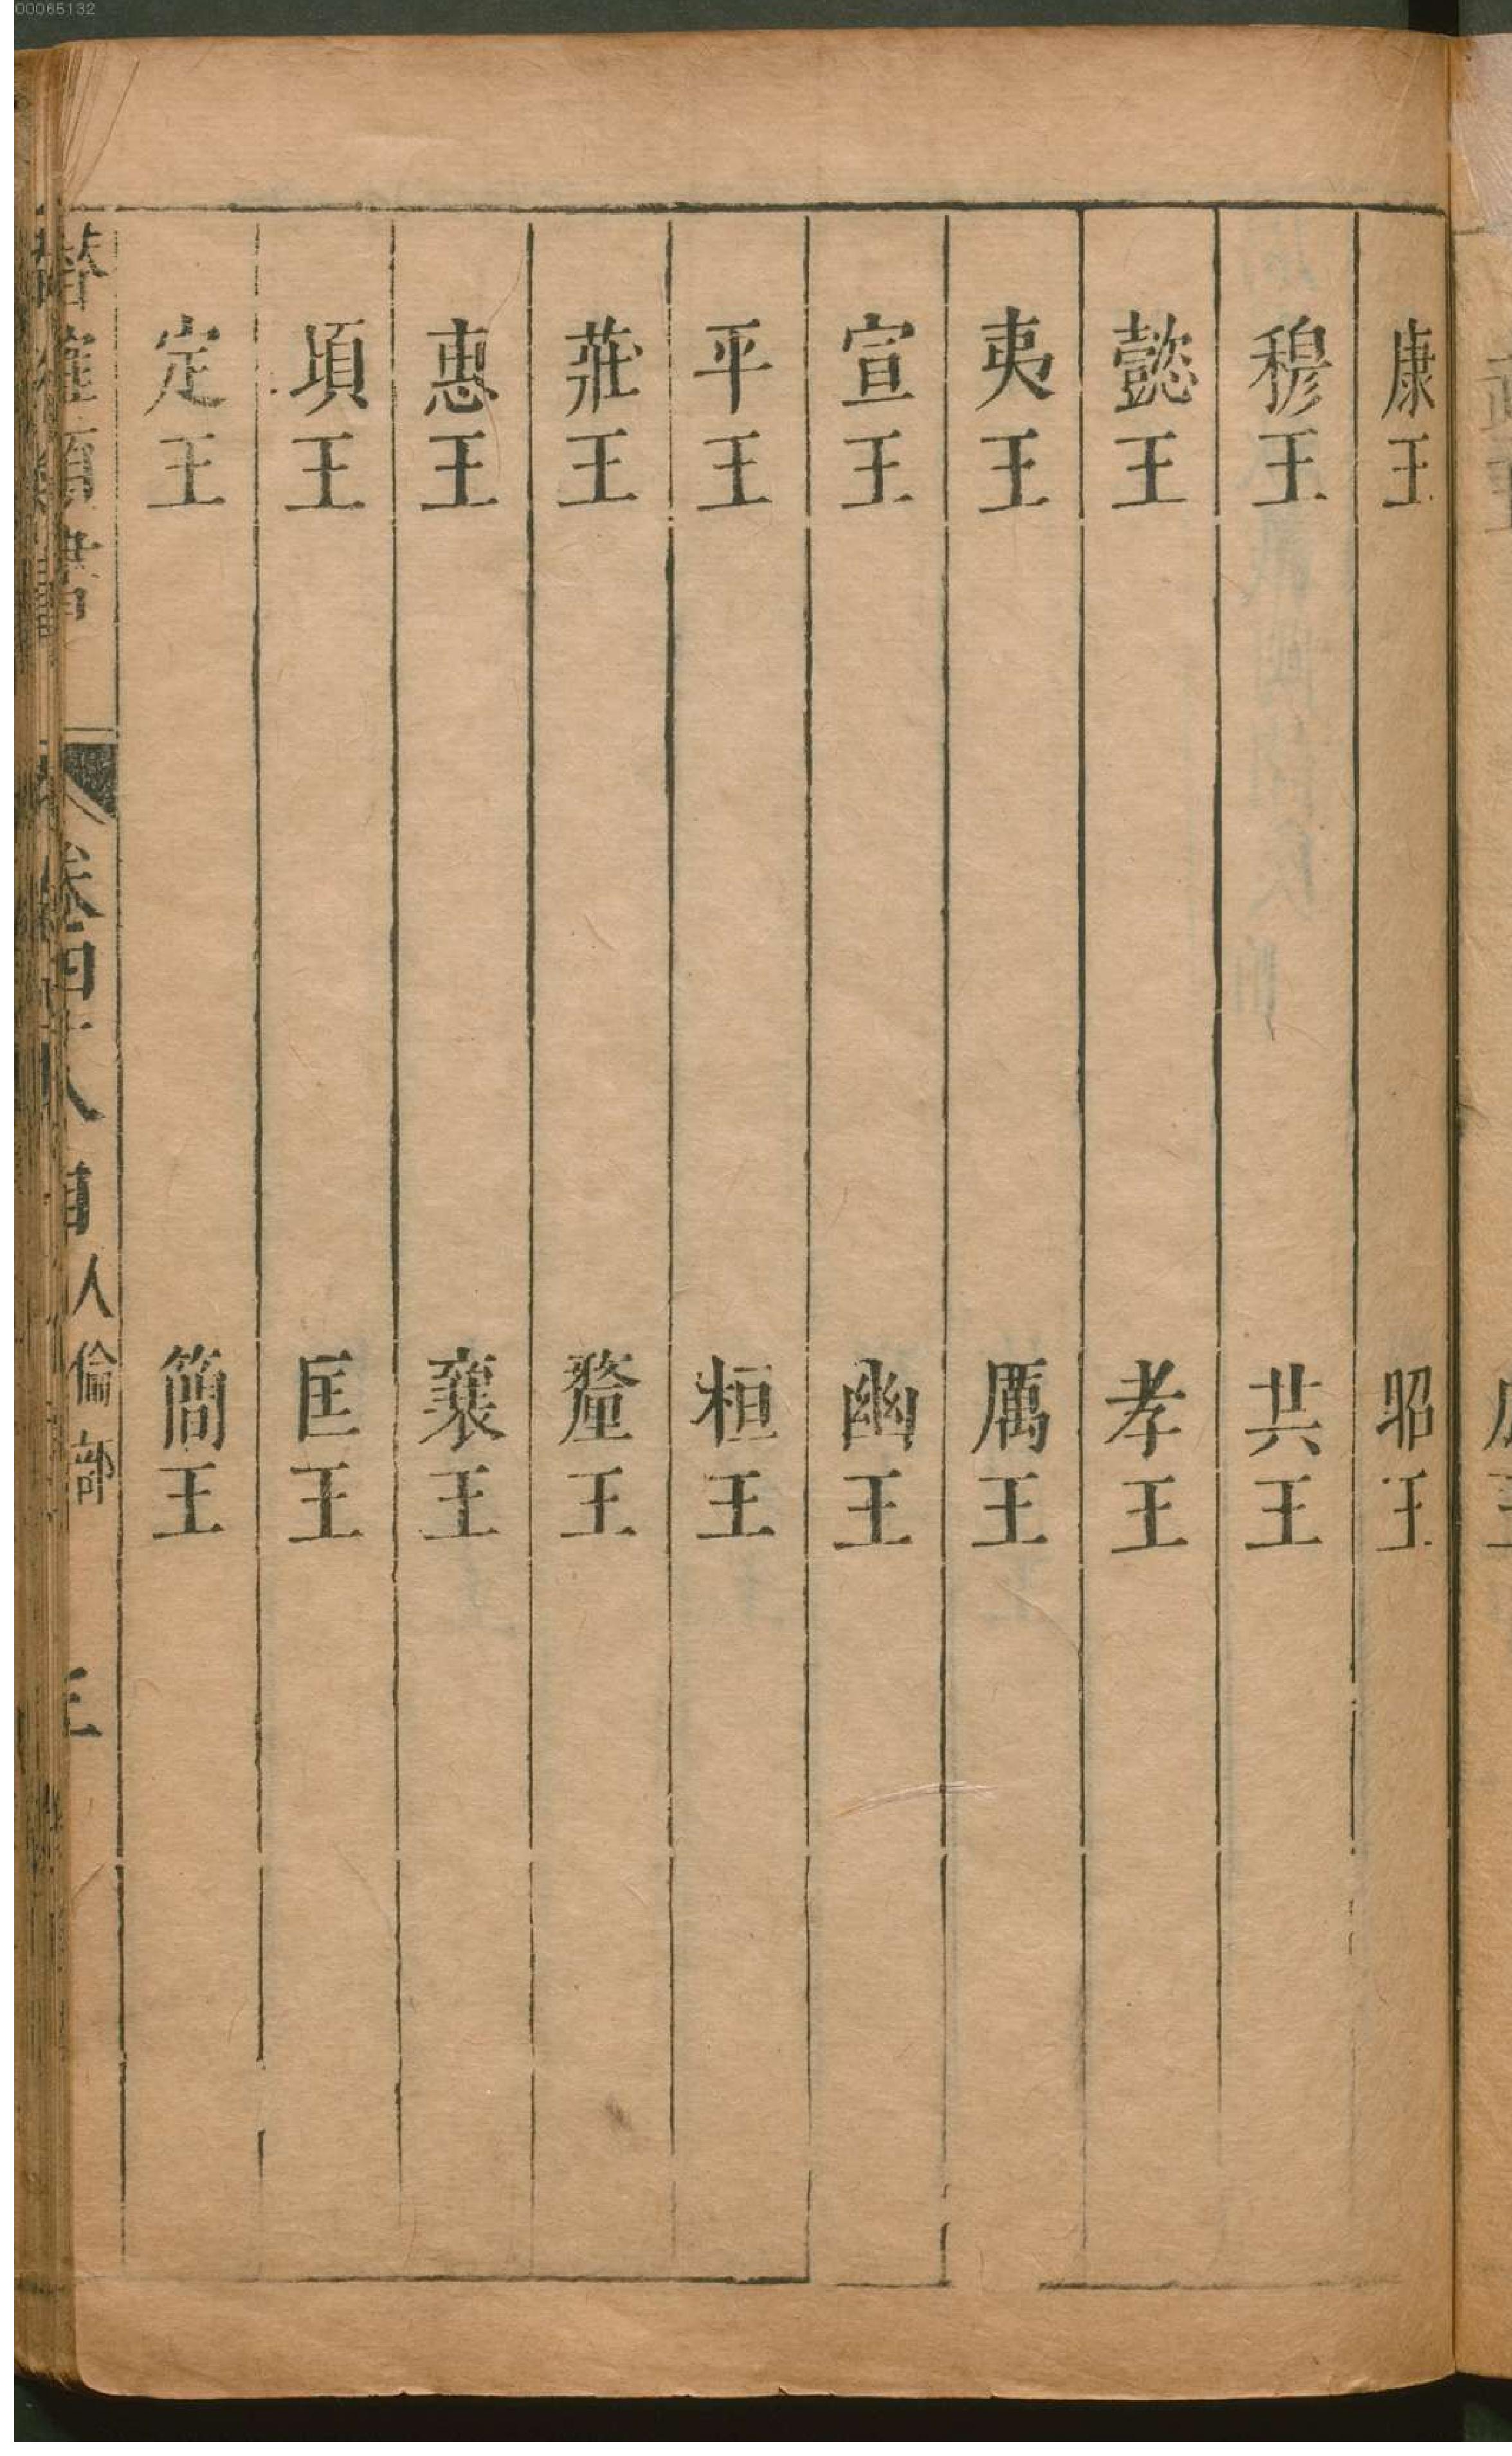 00065132
康王 昭王
穆王 共王
懿王 孝王
夷王 厲王
宣王 幽王
平王 桓王
莊王 釐王
惠王 襄王
項王 匡王
定王 簡王
人倫部